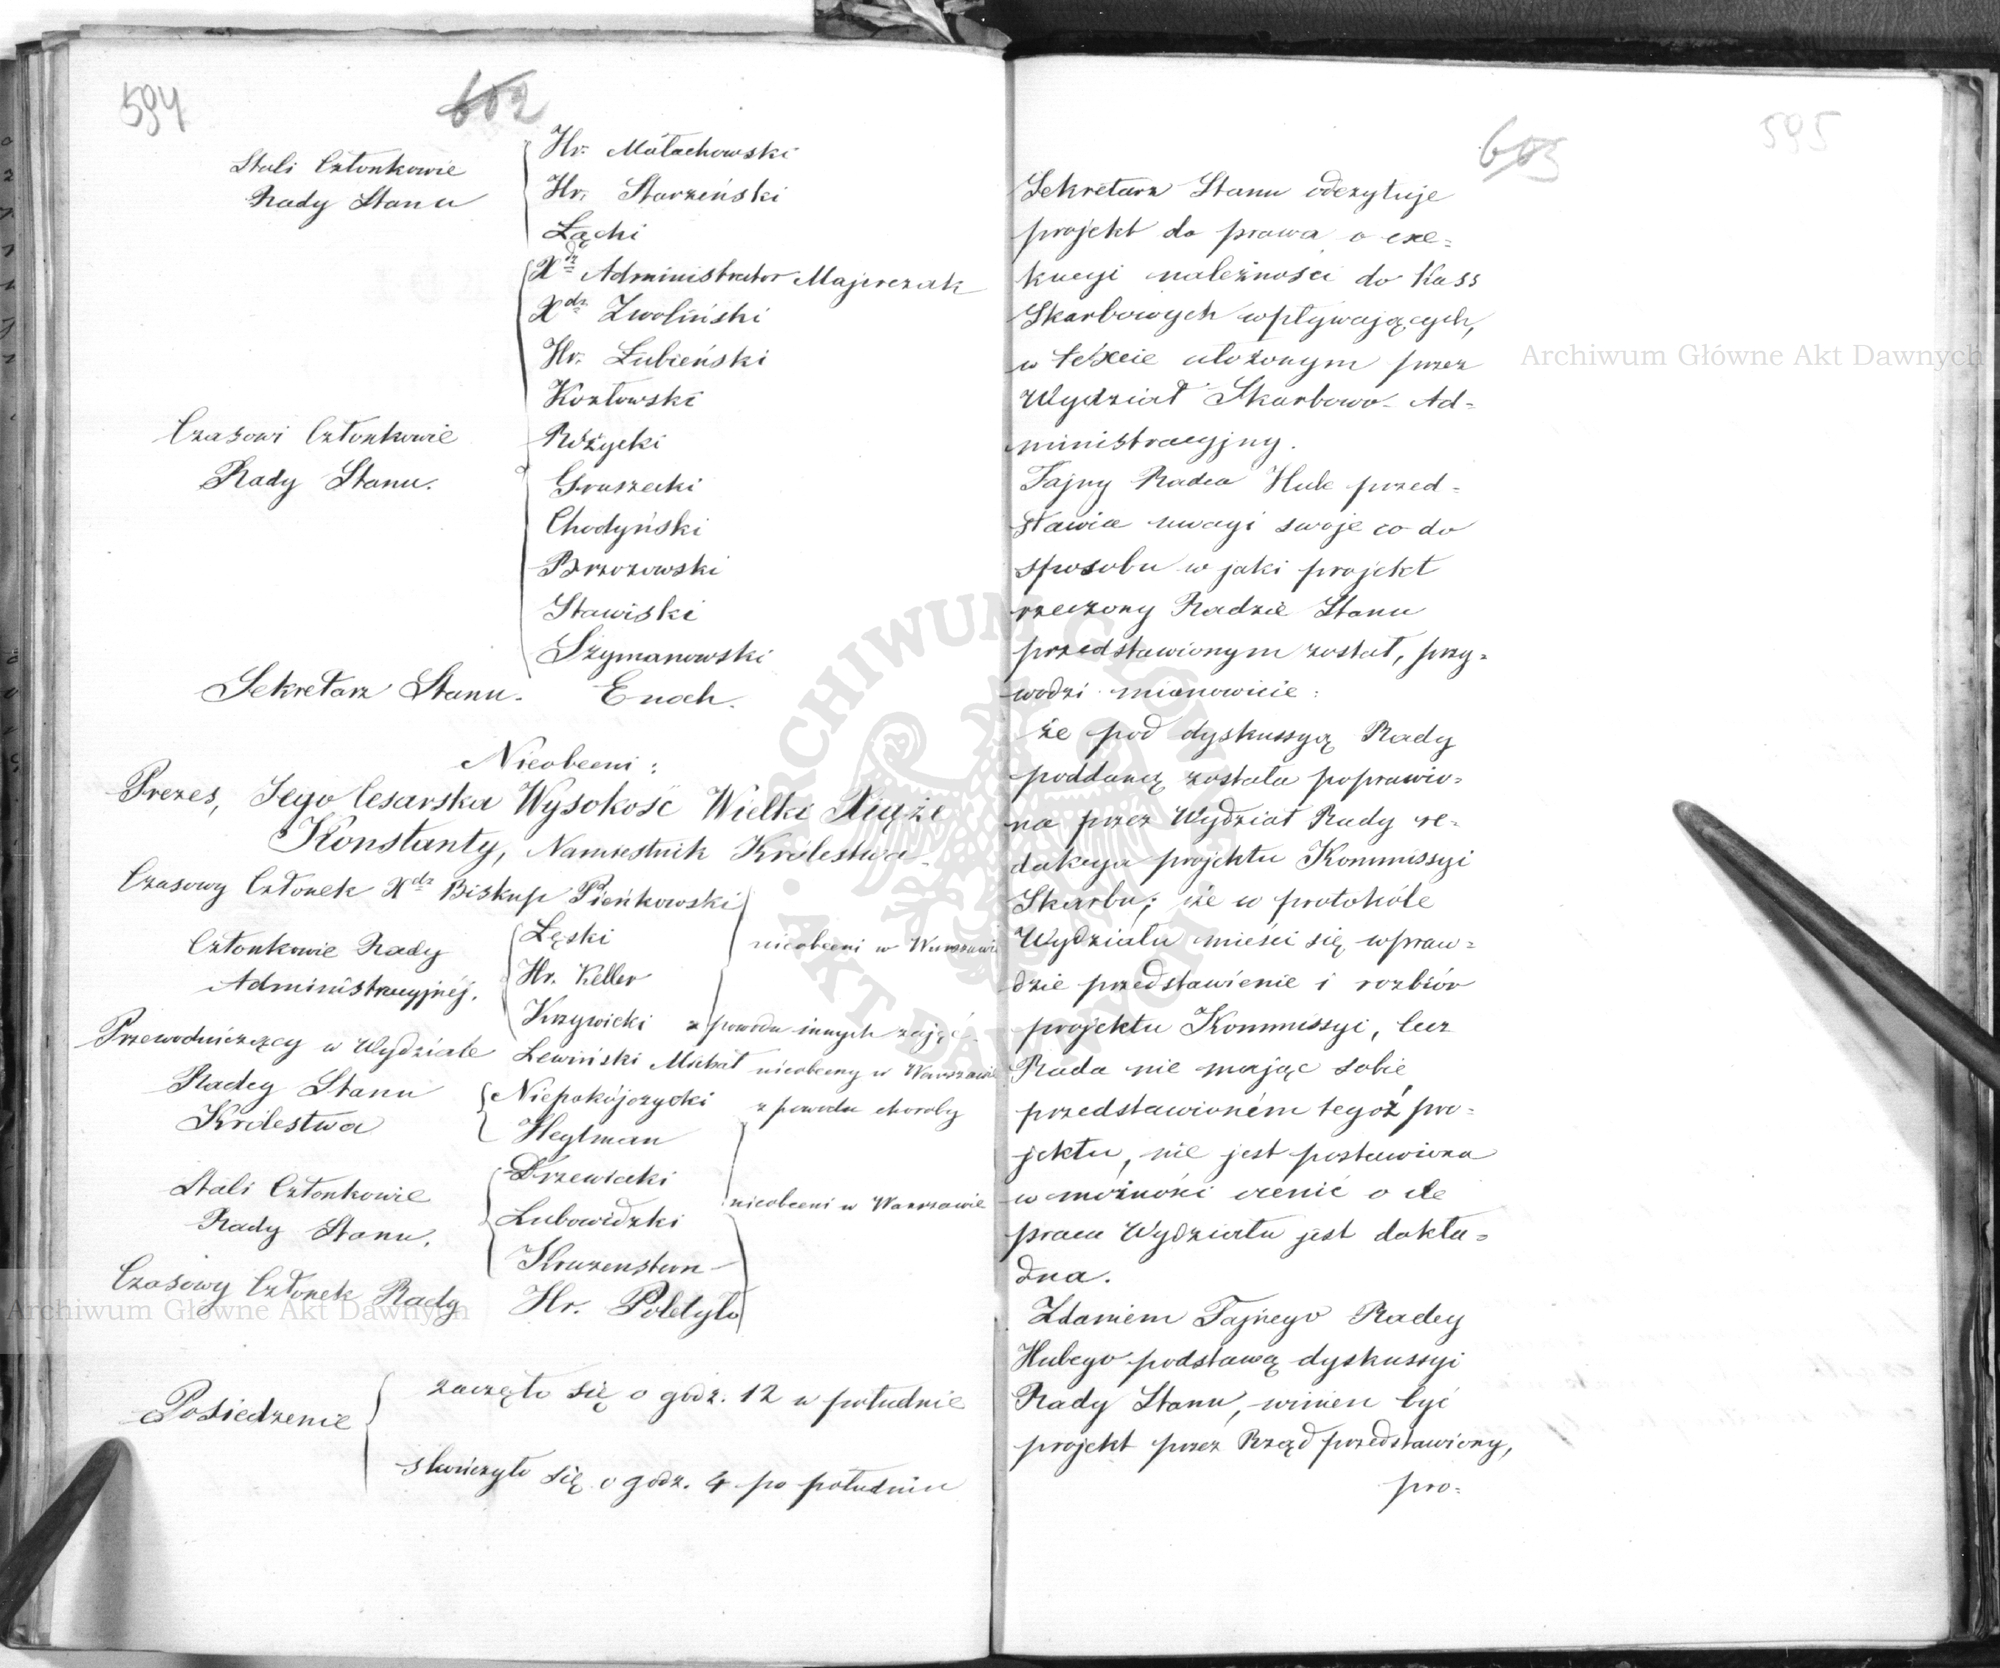 594
602
Stali Członkowie
Rady Stanu
Hr. Małachowski
Hr. Starzeński
Łącki
Xdz Administrator Majerczak
Xdz Zwoliński
Hr. Łubieński
Kozłowski
Czasowi Członkowie
Rady Stanu.
Różycki
Gruszecki
Chodyński
Brzozowski
Stawiski
Szymanowski
Sekretarz Stanu. Enoch.
Nieobecni:
Prezes, Jego Cesarska Wysokość Wielki Xiąże
Konstanty, Namiestnik Królestwa
Czasowy Członek Xdz Biskup Pieńkowski
Członkowie Rady
Administracyjnéj.
Łęski
nieobecni w Warszawie
Hr. Keller
Krzywicki z powodu innych zajęć
Przewodniczący w Wydziale
Lewiński Michał nieobecny w Warszawie
Radcy Stanu
Królestwa
Niepokójczycki z powodu choroby
Heylman
Stali Członkowie
Rady Stanu.
Drzewiecki
Lubowidzki
nieobecni w Warszawie
Kruzenstern
Czasowy Członek Rady Hr. Poletyło
Posiedzenie
zaczęło się o godz. 12 w południe
skończyło się o godz. 4 po południu
603
595
Sekretarz Stanu odczytuje
projekt do prawa o exe=
kucyi należności do Kass
Skarbowych wpływających,
w texcie ułożonym przez
Wydział Skarbowo-Ad=
ministracyjny.
Tajny Radca Hube przed=
stawia uwagi swoje co do
sposobu w jaki projekt
rzeczony Radzie Stanu
przedstawionym został, przy=
wodzi mianowicie:
że pod dyskussyą Rady
poddaną została poprawio=
na przez Wydział Rady re=
dakcya projektu Kommissyi
Skarbu; że w protokóle
Wydziału mieści się wpraw=
dzie przedstawienie i rozbiór
projektu Kommissyi, lecz
Rada nie mając sobie
przedstawioném tegoż pro=
jektu, nie jest postawiona
w możności ocenić o ile
praca Wydziału jest dokła=
dna.
Zdaniem Tajnego Radcy
Hubego podstawą dyskussyi
Rady Stanu, winien być
projekt przez Rząd przedstawiony,
pro=
Archiwum Główne Akt Dawnych
Archiwum Główne Akt Dawnych
ARCHIWUM GŁÓWNE AKT DAWNYCH